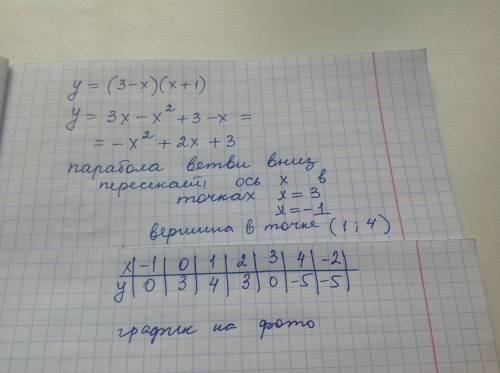 y = (3-x)(x+1)
y = 3x - x² + 3 - x =
= -x² + 2x + 3
парабола ветви вниз
пересекает ось x в
точках x = 3
x = -1
вершина в точке (1; 4)
x | -1 | 0 | 1 | 2 | 3 | 4 | -2 |
y | 0 | 3 | 4 | 3 | 0 | -5 | -5 |
график на фото